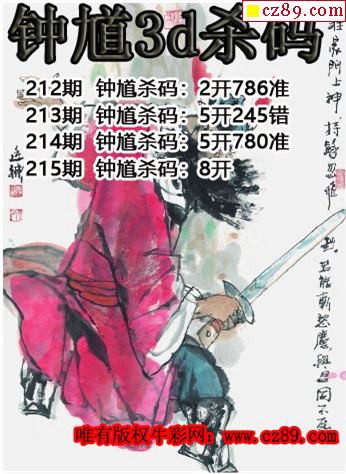 cz89.com
钟馗3d杀码
212期 钟馗杀码：2开786准
213期 钟馗杀码：5开245错
214期 钟馗杀码：5开780准
215期 钟馗杀码：8开
唯有版权牛彩网：www.cz89.com